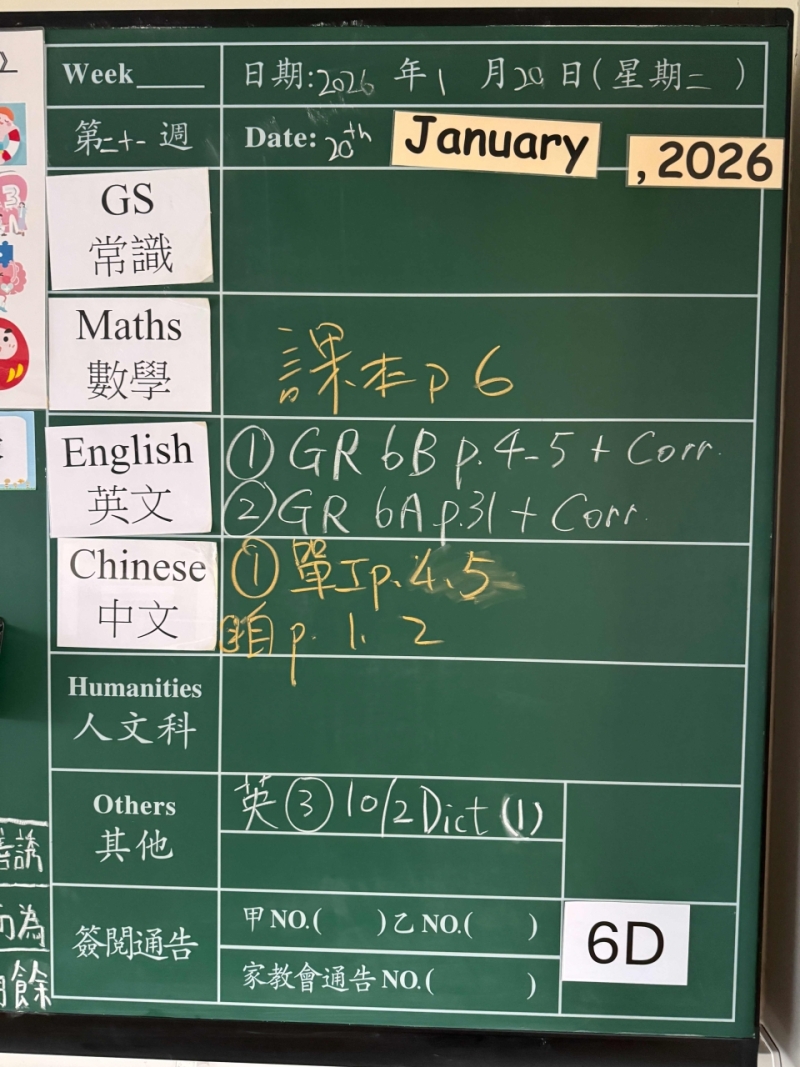 Week____ 日期:2026年1月20日(星期二)
第二十一週 Date: 20th January, 2026
GS
常識
Maths
數學
課本p 6
English
英文
① GR 6B p.4-5 + Corr.
② GR 6A p.31 + Corr.
Chinese
中文
① 單工p.4.5
自p. 1. 2
Humanities
人文科
Others
其他
英③ 10/2 Dict (1)
簽閱通告
甲NO.( )乙NO.( )
家教會通告NO.( )
6D
誘
為
餘
3